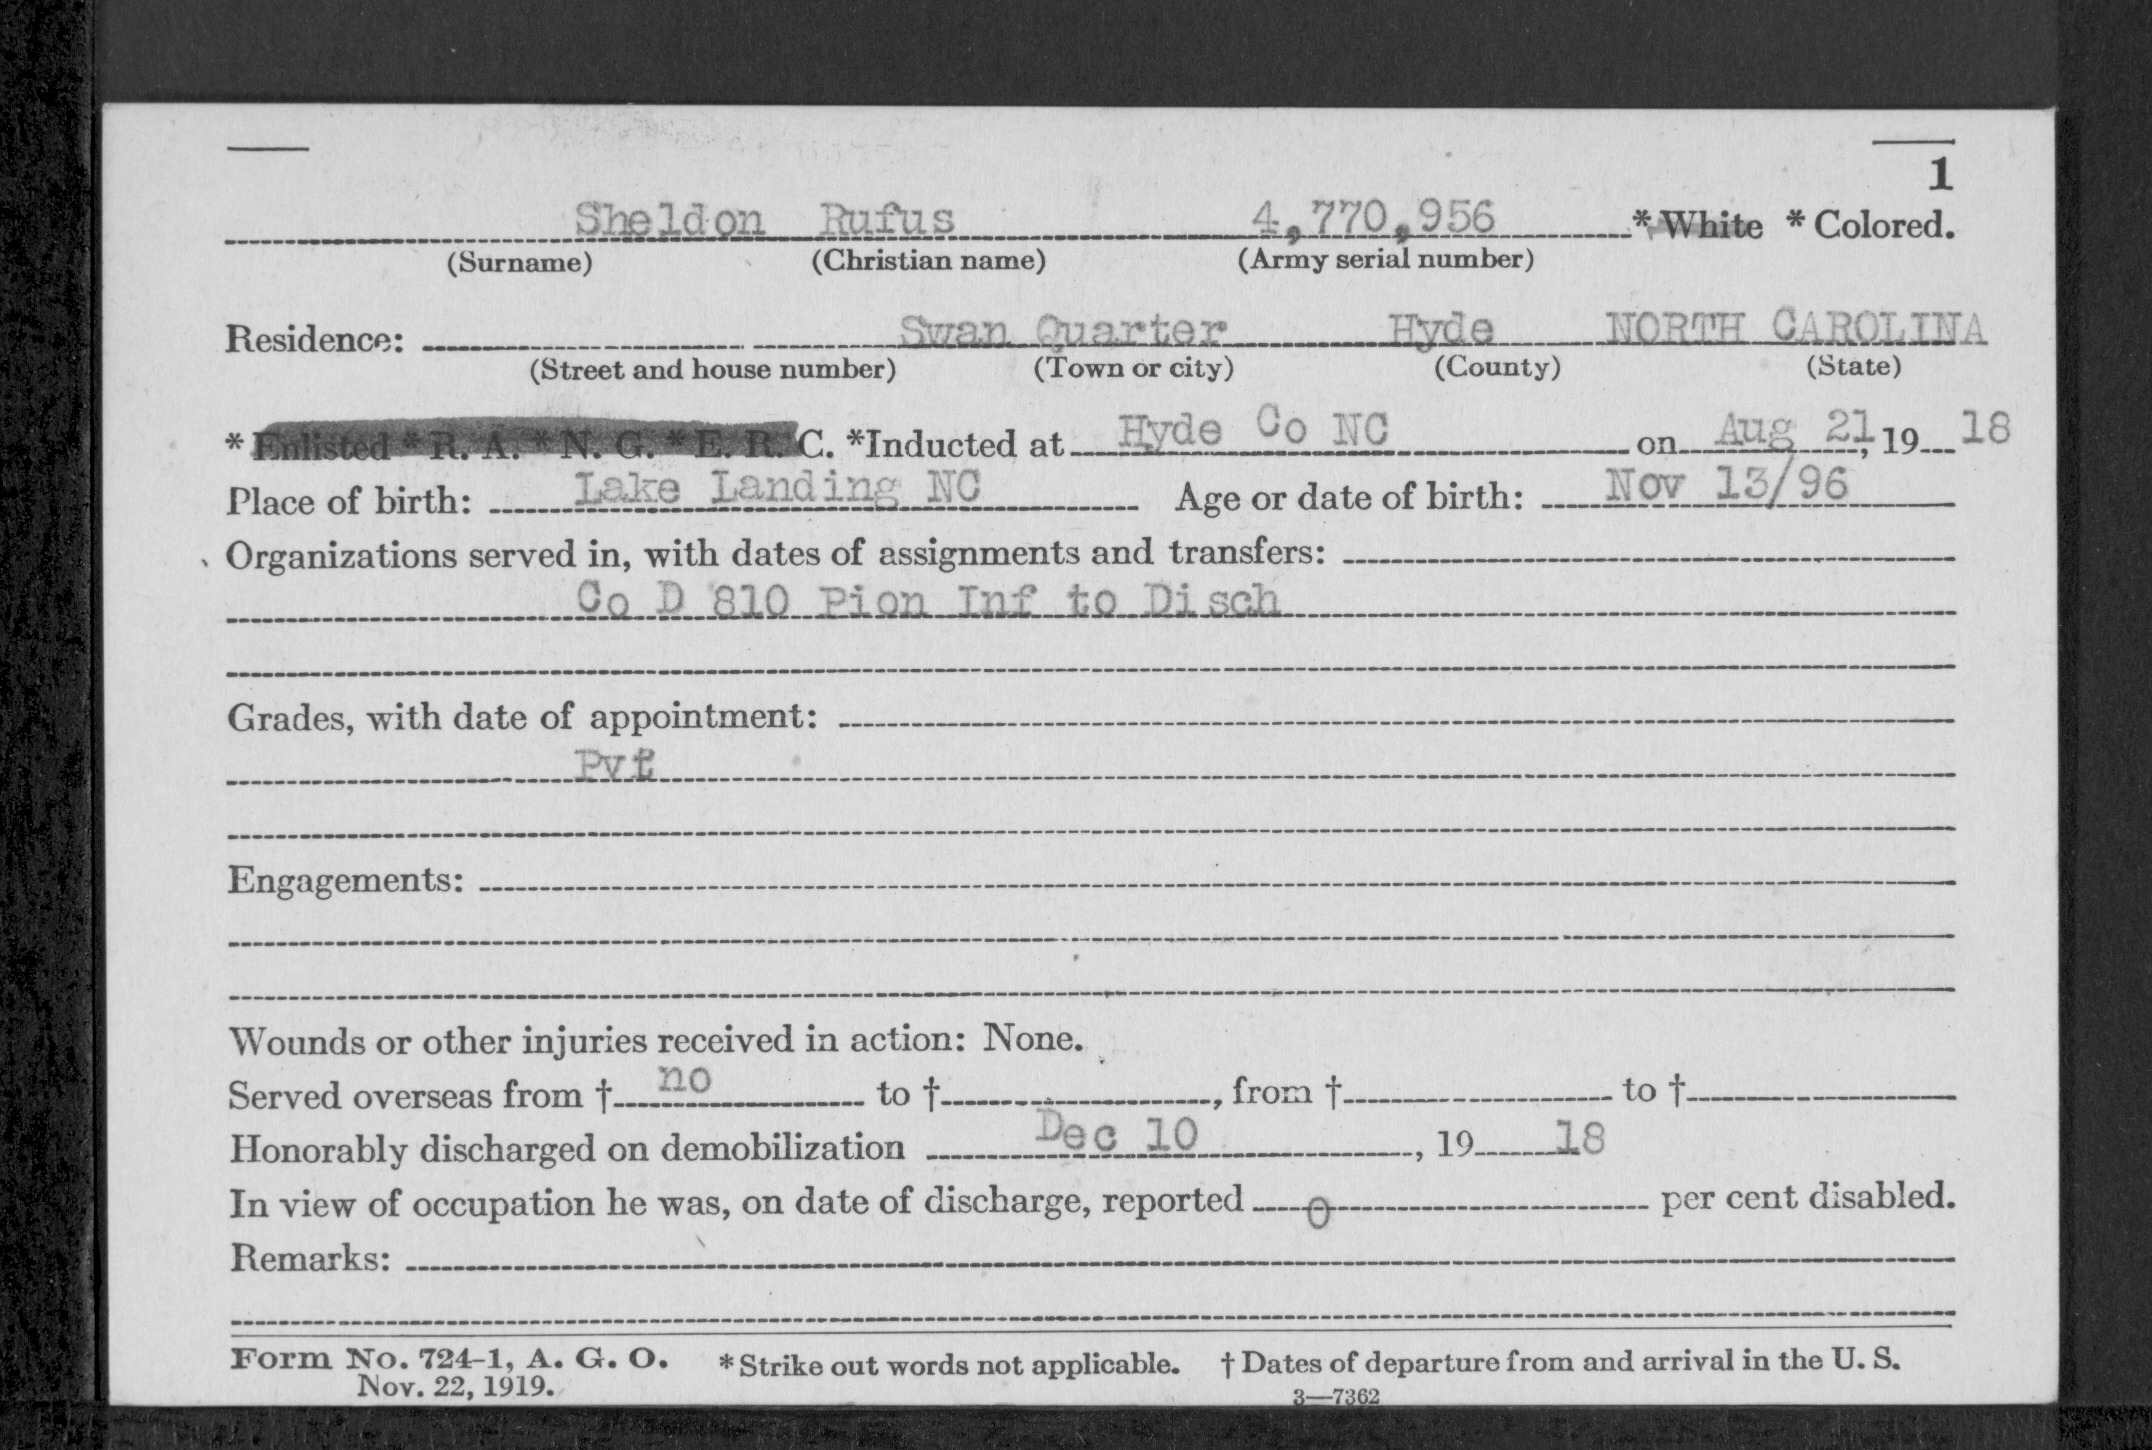 1
Sheldon Rufus 4,770,956 * White * Colored.
(Surname) (Christian name) (Army serial number)
Residence: Swan Quarter Hyde NORTH CAROLINA
(Street and house number) (Town or city) (County) (State)
* Enlisted * R. A. * N. G. * E. R. C. *Inducted at Hyde Co NC on Aug 21, 19 18
Place of birth: Lake Landing NC Age or date of birth: Nov 13/96
Organizations served in, with dates of assignments and transfers:
Co D 810 Pion Inf to Disch
Grades, with date of appointment:
Pvt
Engagements:
Wounds or other injuries received in action: None.
Served overseas from † no to †, from † to †
Honorably discharged on demobilization Dec 10, 19 18
In view of occupation he was, on date of discharge, reported 0 per cent disabled.
Remarks:
Form No. 724-1, A. G. O. * Strike out words not applicable. † Dates of departure from and arrival in the U. S.
Nov. 22, 1919. 3—7362